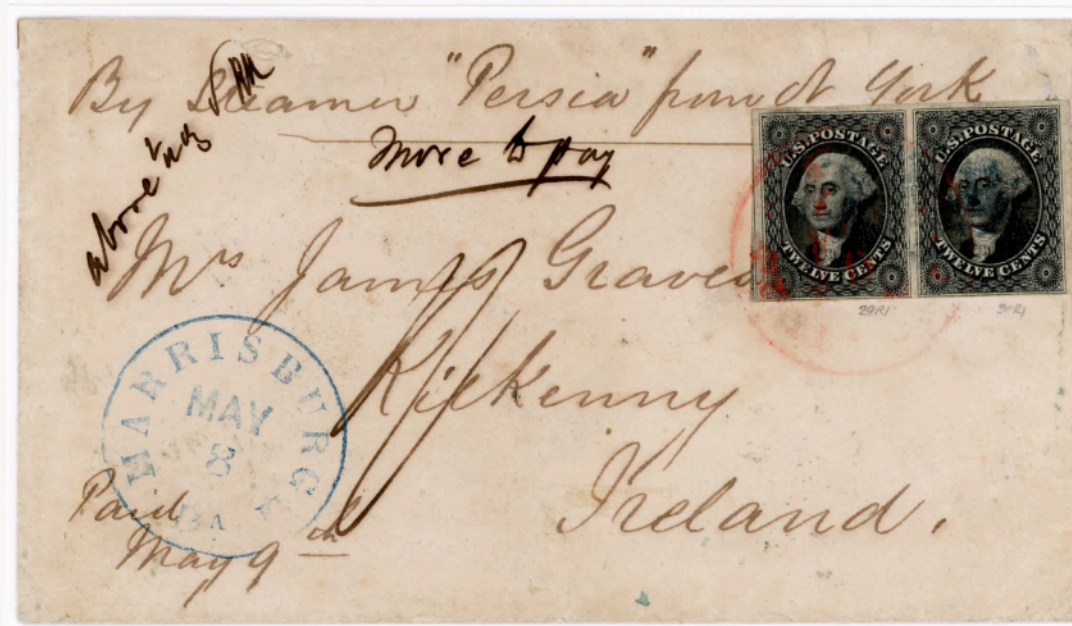 By Steamer "Persia" from N York
above ½ oz
More to pay
U.S. POSTAGE
TWELVE CENTS
U.S. POSTAGE
TWELVE CENTS
29R1
30R1
Mrs James Graves
Kilkenny
Ireland.
HARRISBURG
MAY
8
Pa
Paid
May 9th